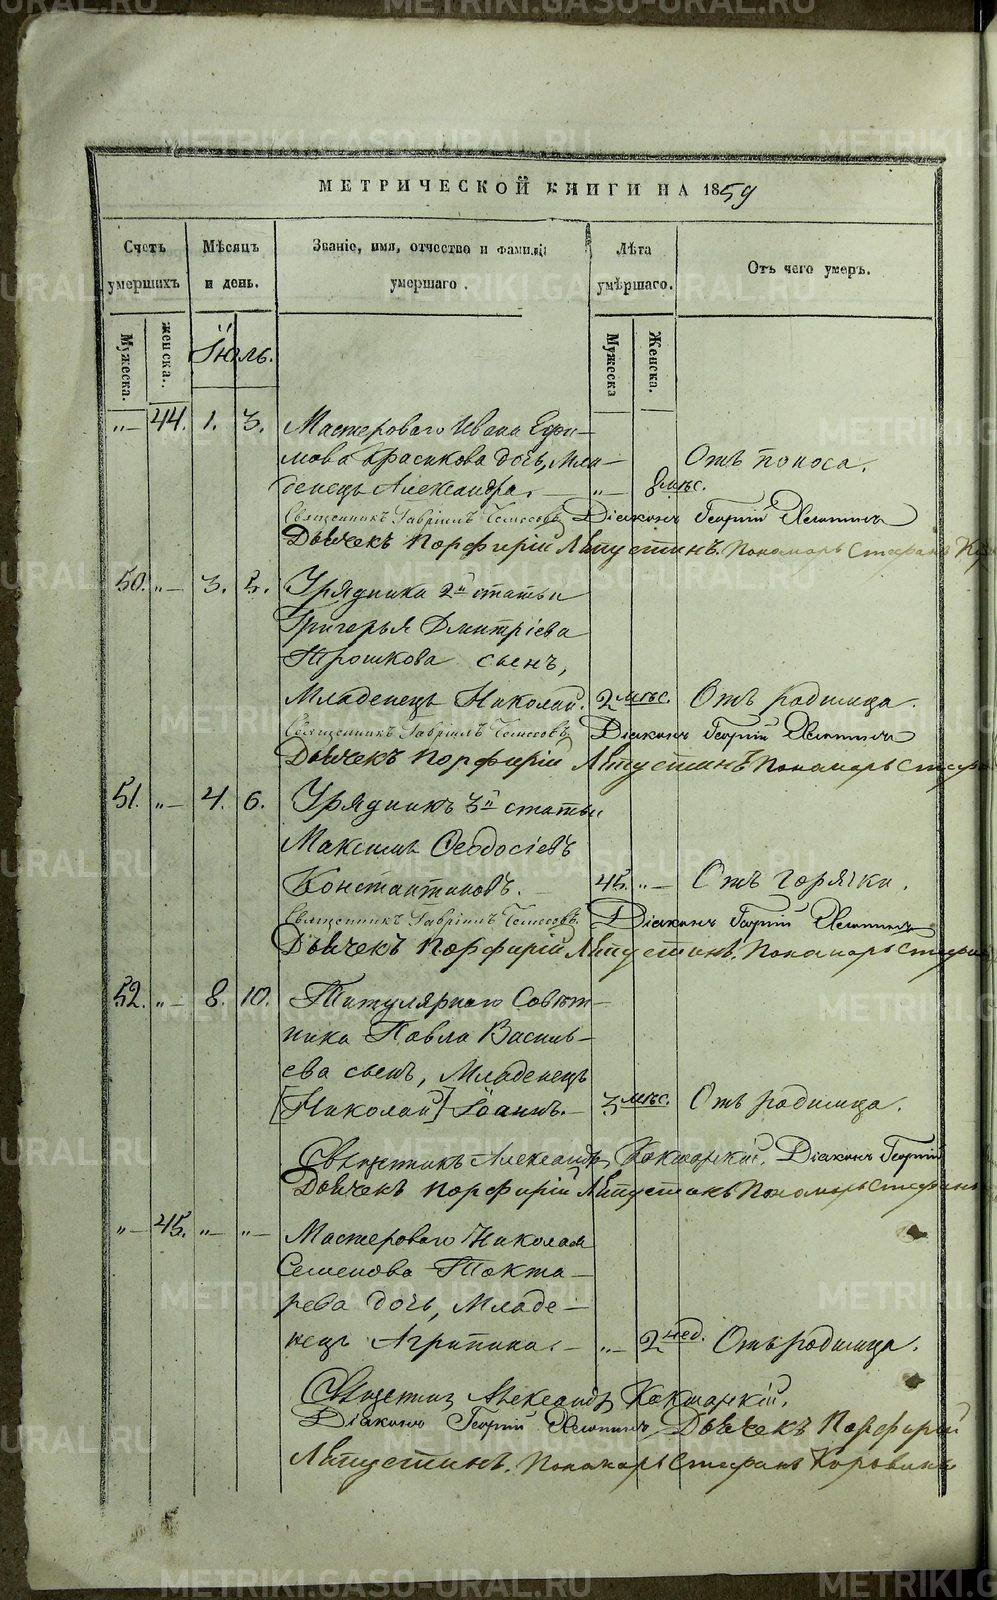 МЕТРИЧЕСКОЙ КНИГИ НА 1859
Счетъ умершихъ
Мѣсяцъ и день.
Званіе, имя, отчество и фамилія умершаго.
Лѣта умершаго.
Отъ чего умеръ.
Мужеска.
женска.
Мужеска
Женска.
Іюль.
„— 44. 1. 3. Мастероваго Ивана Ефи-
мова Красикова дочь, Мла- Отъ поноса.
денецъ Александра. — „— 8 мѣс.
Священникъ Гавріилъ Діаконъ Георгій
Дьячекъ Порфирій Пономарь Стефанъ
50. „— 3. 5. Урядника 2й статьи
Григорья Дмитріева
Трошкова сынъ,
Младенецъ Николай. 2 мѣс. Отъ родимца.
Священникъ Гавріилъ Діаконъ Георгій
Дьячекъ Порфирій Пономарь
51. „— 4. 6. Урядникъ 3й статьи
Максимъ Ѳеодосіевъ
Константиновъ. — 45. „— Отъ горячки.
Священникъ Гавріилъ Діаконъ Георгій
Дьячекъ Порфирій Пономарь
52. „— 8. 10. Титулярнаго Совѣт-
ника Павла Василь-
ева сынъ, Младенецъ
[Николай] Іоаннъ. — 3 мѣс. Отъ родимца.
Священникъ Александръ Кокшарскій. Діаконъ Георгій
Дьячекъ Порфирій Пономарь Стефанъ
„— 45. „— „— Мастероваго Николая
Семенова Токта-
рева дочь, Младе-
нецъ Агрипина. — „— 2 нед. Отъ родимца.
Священникъ Александръ Кокшарскій.
Діаконъ Георгій Дьячекъ Порфирій
Пономарь Стефанъ Коровинъ
METRIKI.GASO-URAL.RU